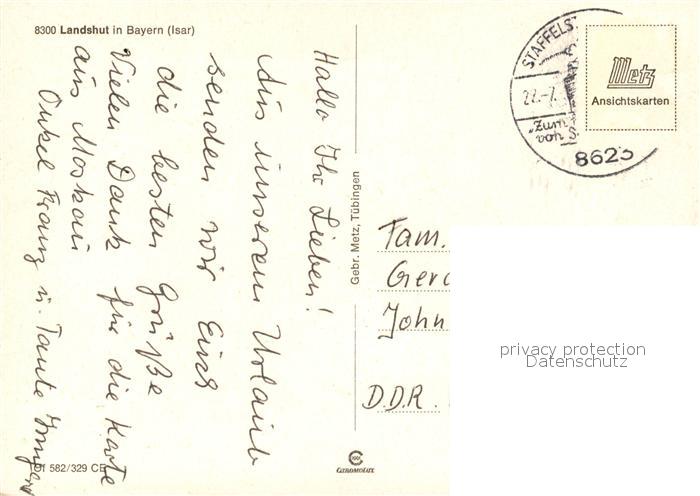 8300 Landshut in Bayern (Isar)
Hallo Ihr Lieben!
Aus unserem Urlaub
senden wir Euch
die besten Grüße
Vielen Dank für die Karte
aus Moskau
Onkel Franz u. Tante
Gebr. Metz, Tübingen
STAFFELST
22.-7.
8623
Metz
Ansichtskarten
Fam.
Gerd
John
D.D.R.
privacy protection
Datenschutz
582/329 CE
CHROMOLUX